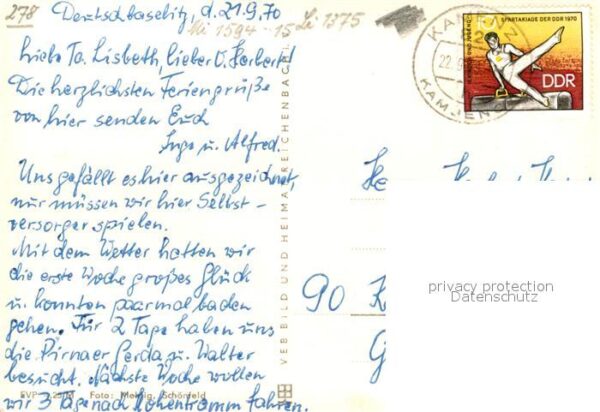 278
Deutschbaselitz, d. 21.9.70
Mi 1594 - 15 Lei 1375
Liebe Ta. Lisbeth, lieber O. Herbert
Die herzlichsten Feriengrüße
von hier senden Euch
Inge u. Alfred.
Uns gefällt es hier ausgezeichnet,
nur müssen wir hier Selbst-
versorger spielen.
Mit dem Wetter hatten wir
die erste Woche großes Glück
u. konnten paarmal baden
gehen. Für 2 Tage haben uns
die Pirnaer Gerda u. Walter
besucht. Nächste Woche wollen
wir 3 Tage nach Hohentramm fahren.
Foto: Schönfeld
VEB BILD UND HEIMAT REICHENBACH
KAMENZ
22.9
KAMJENC
SPARTAKIADE DER DDR 1970
DDR
90
privacy protection
Datenschutz